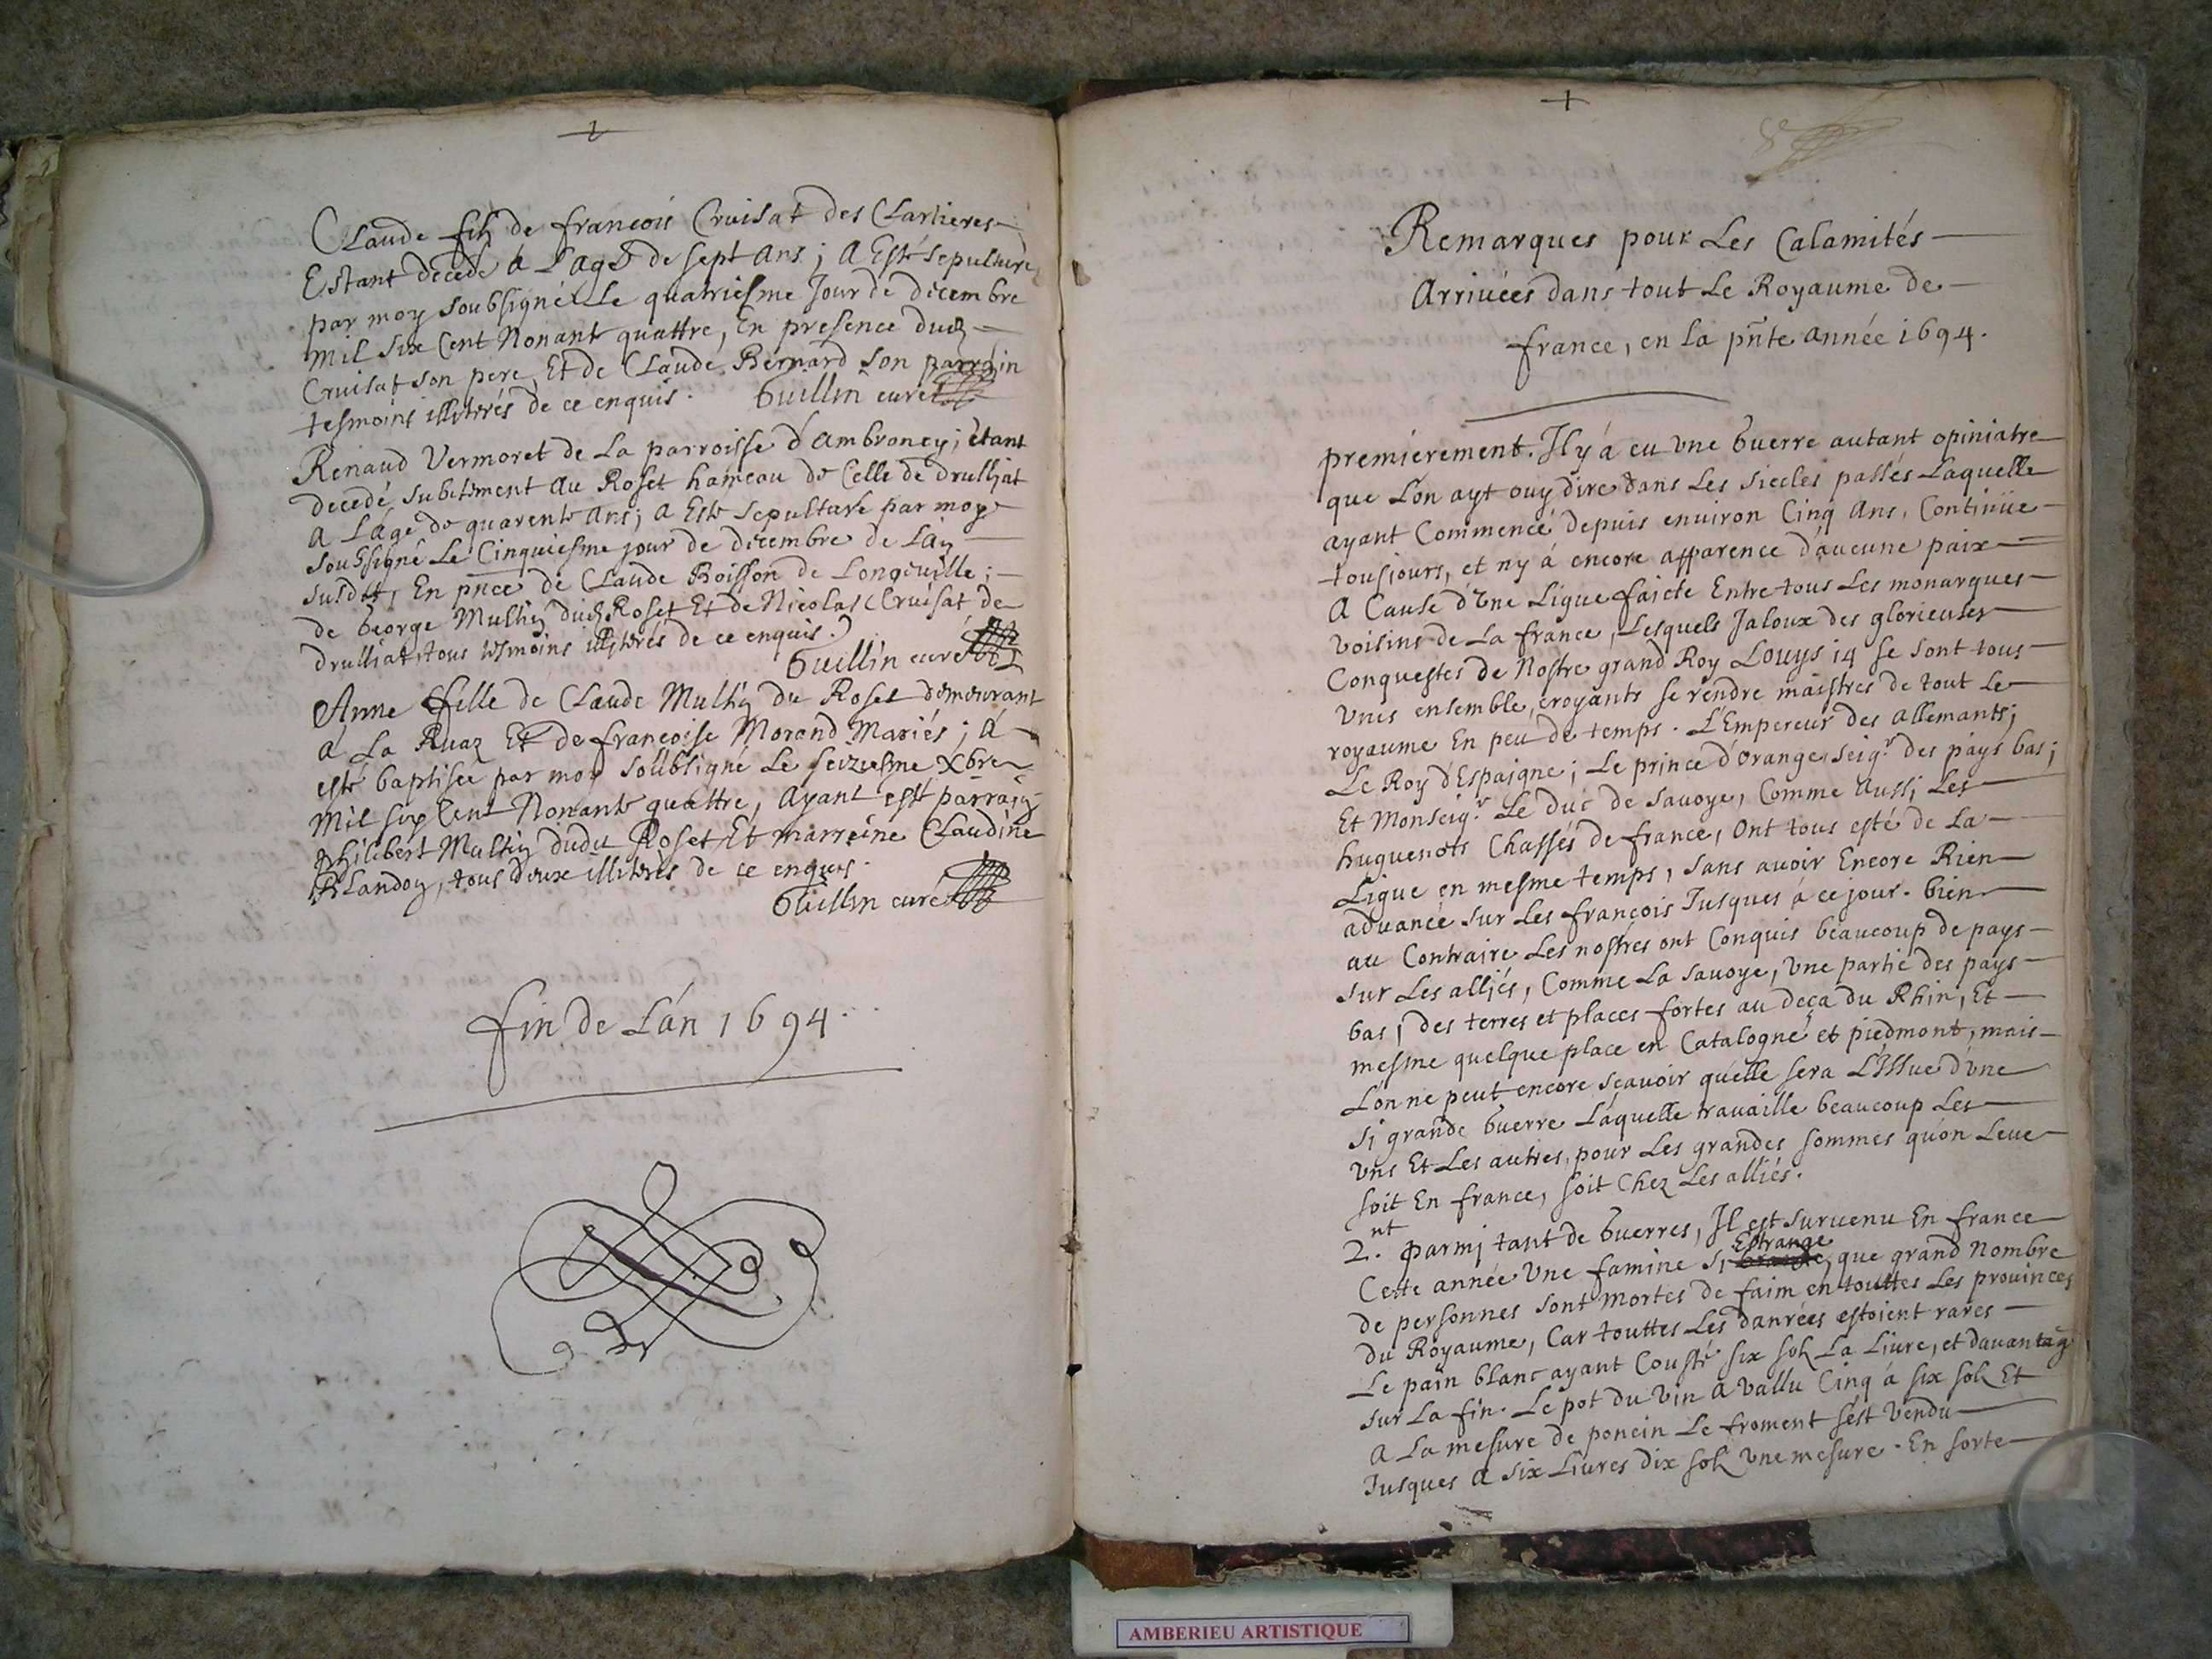 Claude filz de francois Cruisat des Clarlieres
Estant decedé á L'age de sept ans ; a Esté sepulturé
par moy soubsigné Le quatriesme Jour de decembre
mil six Cent Nonante quattre, En presence dud
Cruisat son pere, Et de Claude Bernard son parrain
tesmoins illiterés de ce enquis. Guillin curé
Renaud Vermoret de La parroisse d'Ambroney ; étant
decedé subitement Au Roset hameau de Celle de drulliat
A L'age de quarente Ans ; a Esté sepulturé par moy
soubsigné Le Cinquiesme jour de decembre de L'an
susdit, En pnce de Claude Boisson de Longeuille ;
de George Mulhin dud Roset Et de Nicolas Cruisat de
drulliat, tous tesmoins illiterés de ce enquis.
Guillin curé
Anne fille de Claude Mulhin du Roset demeurant
á La Ruaz Et de francoise Morand Mariés ; A
esté baptisée par moy soubsigné Le seiziesme Xbre
Mil six Cent Nonante quattre, Ayant esté parrain
philibert Mulhin dudit Roset Et marreine Claudine
BLandon, tous deux illiterés de ce enquis.
Guillin curé
fin de L'án 1694.
+
Remarques pour Les Calamités
Arriuées dans tout Le Royaume de
france, en La pnte année 1694.
premierement. Il y á eu vne Guerre autant opiniatre
que L'on ayt ouy dire dans Les siecles passés Laquelle
ayant Commencé depuis enuiron Cinq Ans, Continüe
tousjours, et n'y á encore apparence d'aucune paix
A Cause d'Vne Ligue faicte Entre tous Les monarques
voisins de La france, Lesquels Jaloux des glorieuses
Conquestes de Nostre grand Roy Louys 14 se sont tous
vnis ensemble, croyants se rendre maistres de tout Le
royaume En peu de temps. L'Empereur des Allemants ;
Le Roy d'Espaigne ; Le prince d'Orange, seigr. des pays bas ;
Et Monseigr. Le duc de Sauoye, Comme Aussi Les
huguenots Chassés de france, Ont tous esté de La
Ligue en mesme temps, sans auoir Encore Rien
aduancé sur Les francois Jusques á ce jour. bien
au Contraire Les nostres ont Conquis beaucoup de pays
sur Les alliés, Comme La Sauoye, Vne partie des pays
bas, des terres et places fortes au deça du Rhin, Et
mesme quelque place en Catalogne et piedmont, mais
L'on ne peut encore scauoir quelle sera L'Issue d'vne
si grande Guerre Laquelle trauaille beaucoup Les
vns Et Les autres, pour Les grandes sommes qu'on Leue
soit En france, soit Chez Les alliés.
2.nt parmi tant de Guerres, Il est suruenu En france
Cette année Vne famine si Estrange, que grand Nombre
de personnes sont mortes de faim en touttes Les prouinces
du Royaume, Car touttes Les danrées estoient rares
Le pain blanc ayant Cousté six solz La Liure, et dauantag
sur La fin. Le pot du vin a vallu Cinq á six solz Et
A La mesure de poncin Le froment s'est vendu
Jusques a six Liures dix solz vne mesure. En sorte
AMBERIEU ARTISTIQUE